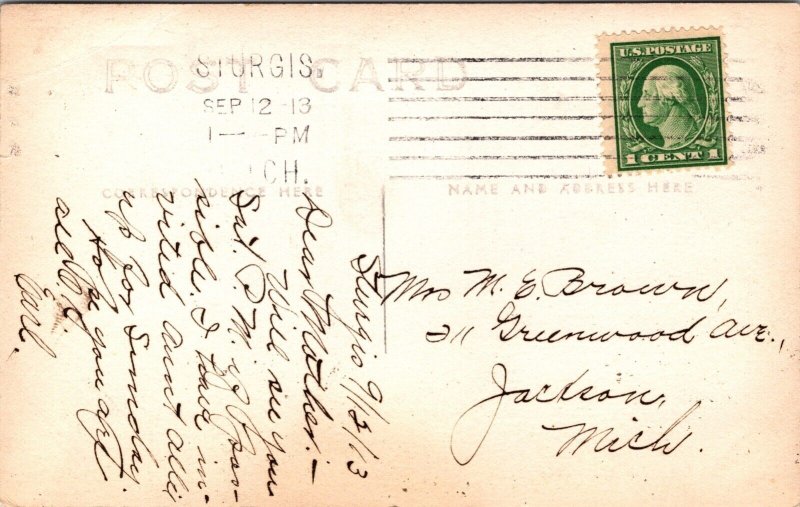 POST CARD
STURGIS,
SEP 12 -13
1 — PM
ICH.
U.S. POSTAGE
1 CENT 1
CORRESPONDENCE HERE
NAME AND ADDRESS HERE
Sturgis 9/12/13
Dear Mother:—
Will see you
Sat. P.M. if pos-
sible. I have in-
vited Aunt Alli
up for Sunday.
Hope you are
Earl.
Mrs M. E. Brown,
311 Greenwood Ave.,
Jackson,
Mich.